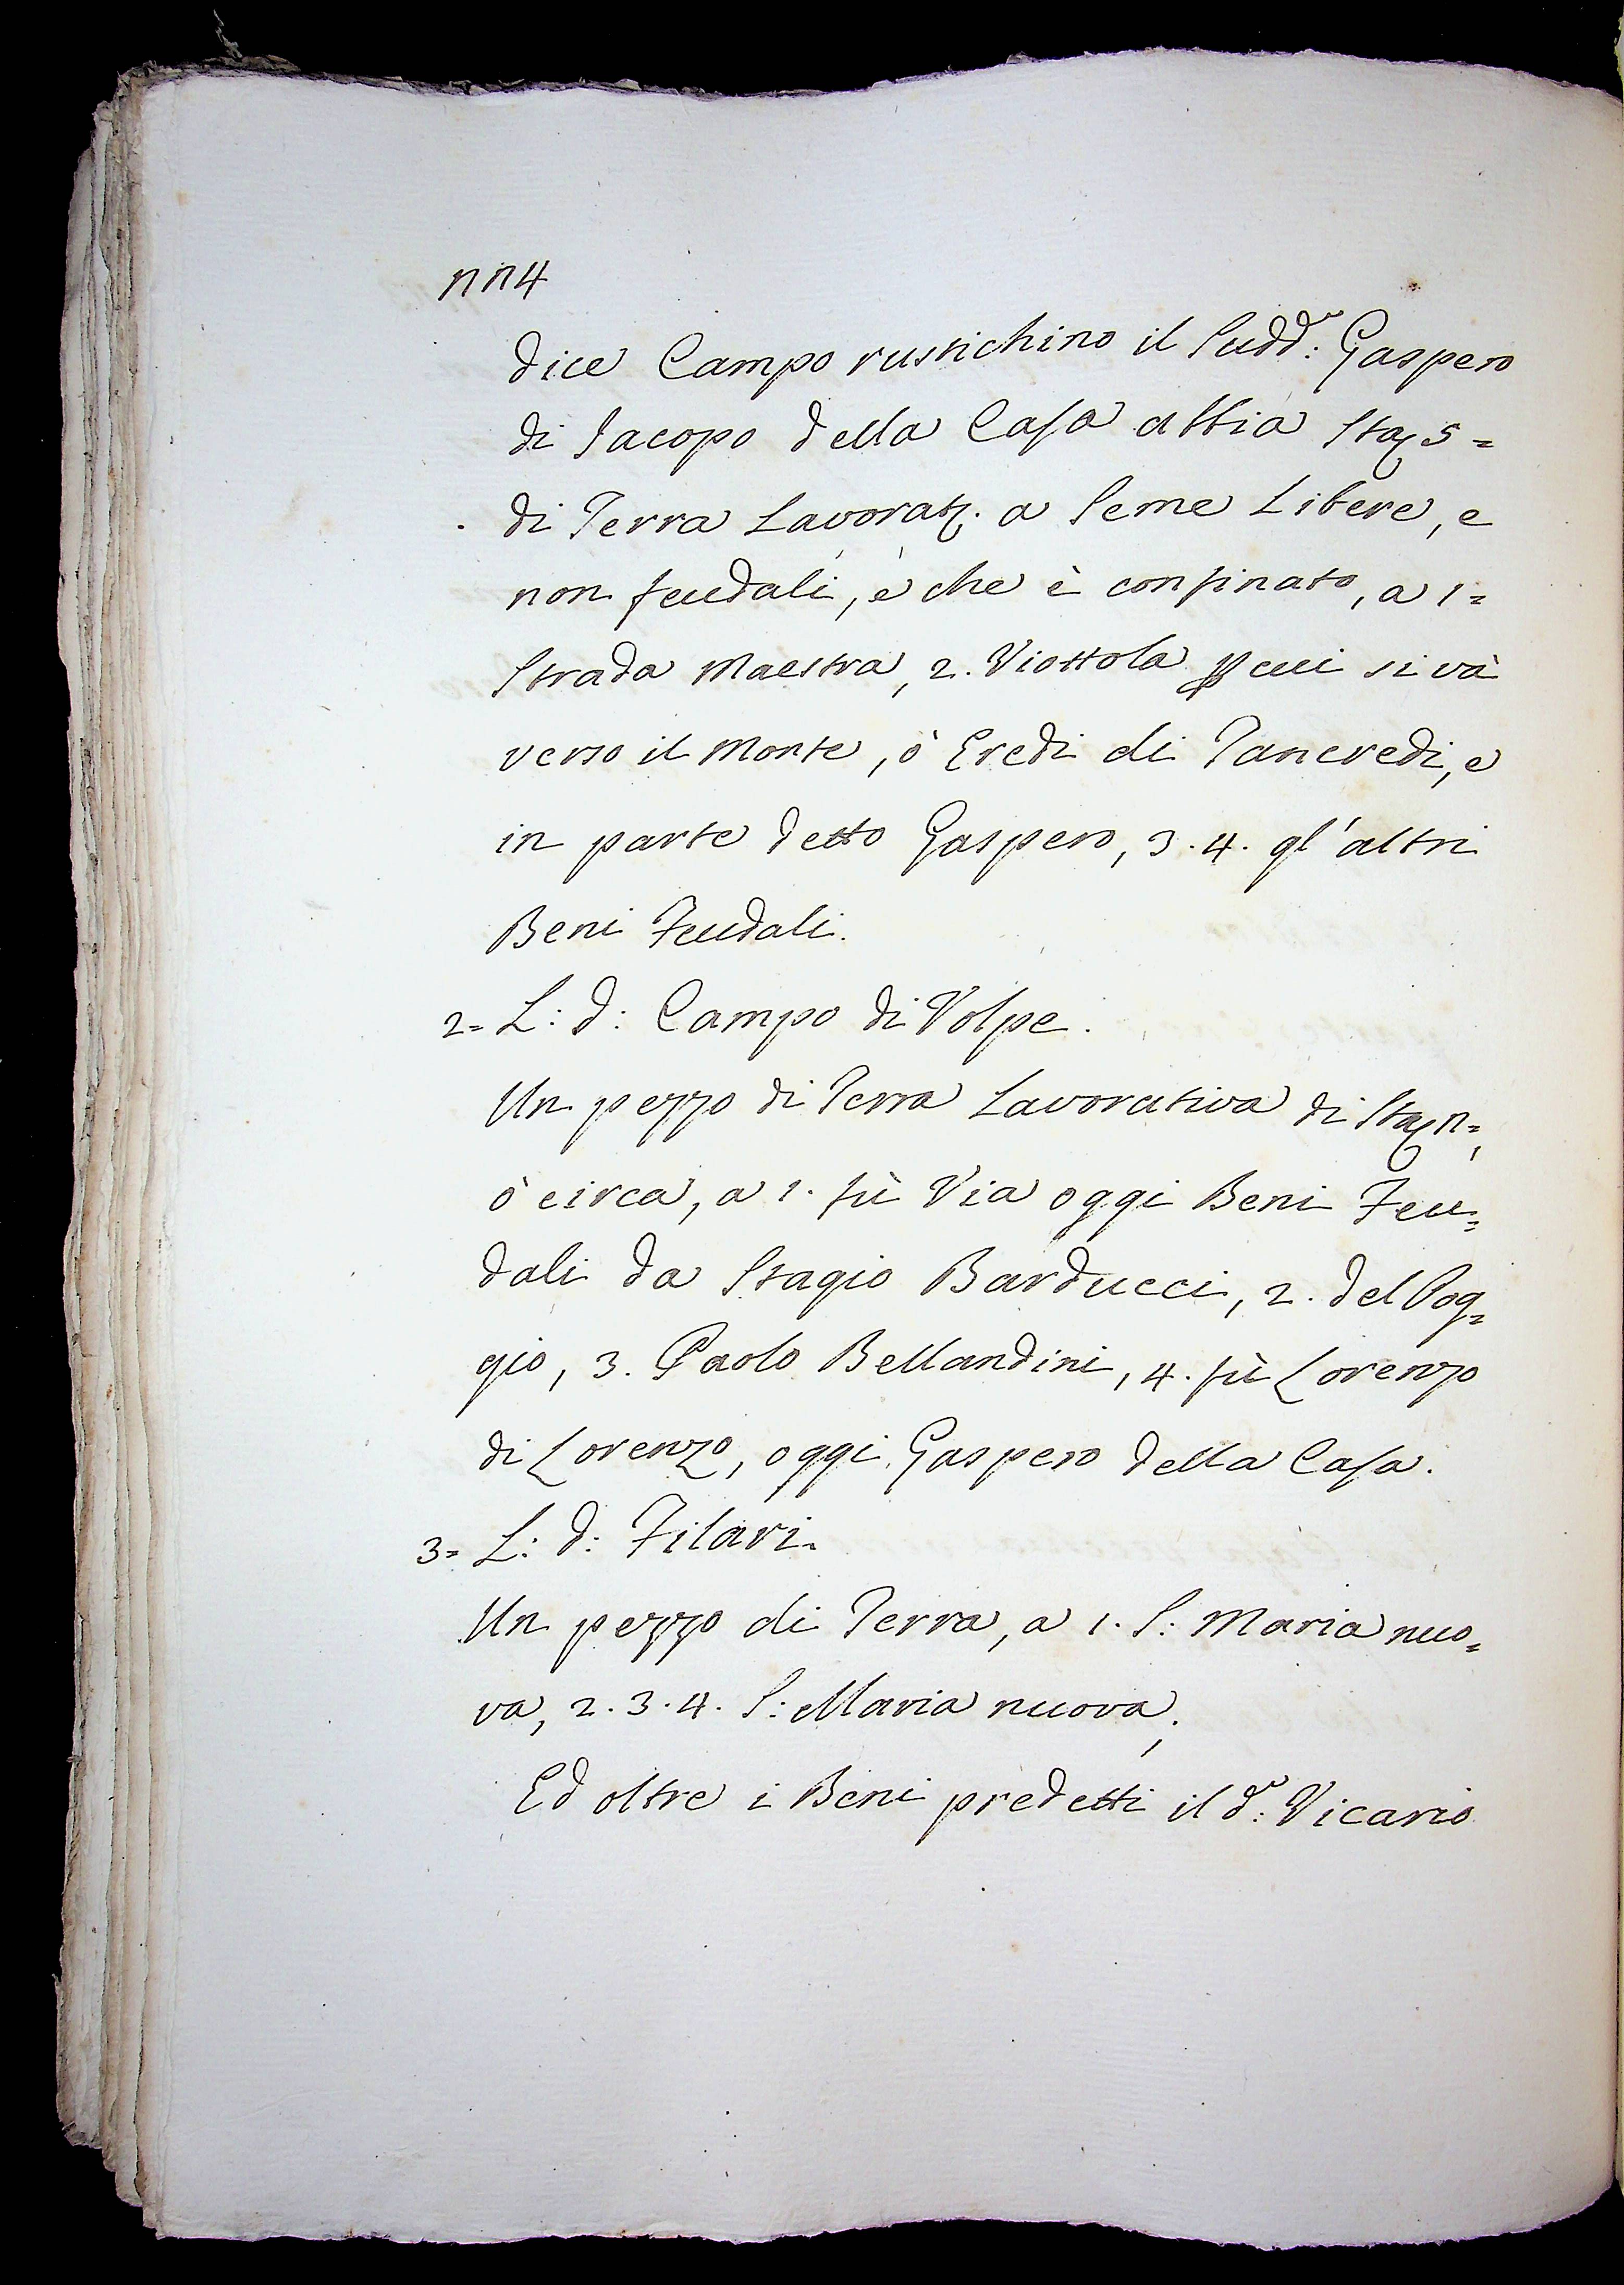 114
dice Campo rustichino il Sudd.º: Gaspero
di Jacopo della Casa abbia Sta 5=
di Terra Lavorat. a Seme Libere, e
non feudali, e che è confinato, a 1=
Strada Maestra, 2. Viottola p cui si và
verso il Monte, ò Eredi di Tancredi, e
in parte detto Gaspero, 3. 4. gl'altri
Beni Feudali.
2= L: d: Campo di Volpe.
Un pezzo di Terra Lavorativa di Sta 11=,
ò circa, a 1. fù Via oggi Beni Feu=
dali da Stagio Barducci, 2. del Pog=
gio, 3. Paolo Bellandini, 4. fù Lorenzo
di Lorenzo, oggi Gaspero della Casa.
3= L: d: Filari.
Un pezzo di Terra, a 1. S: Maria nuo=
va, 2. 3. 4. S: Maria nuova;
Ed oltre i Beni predetti il d.º: Vicario